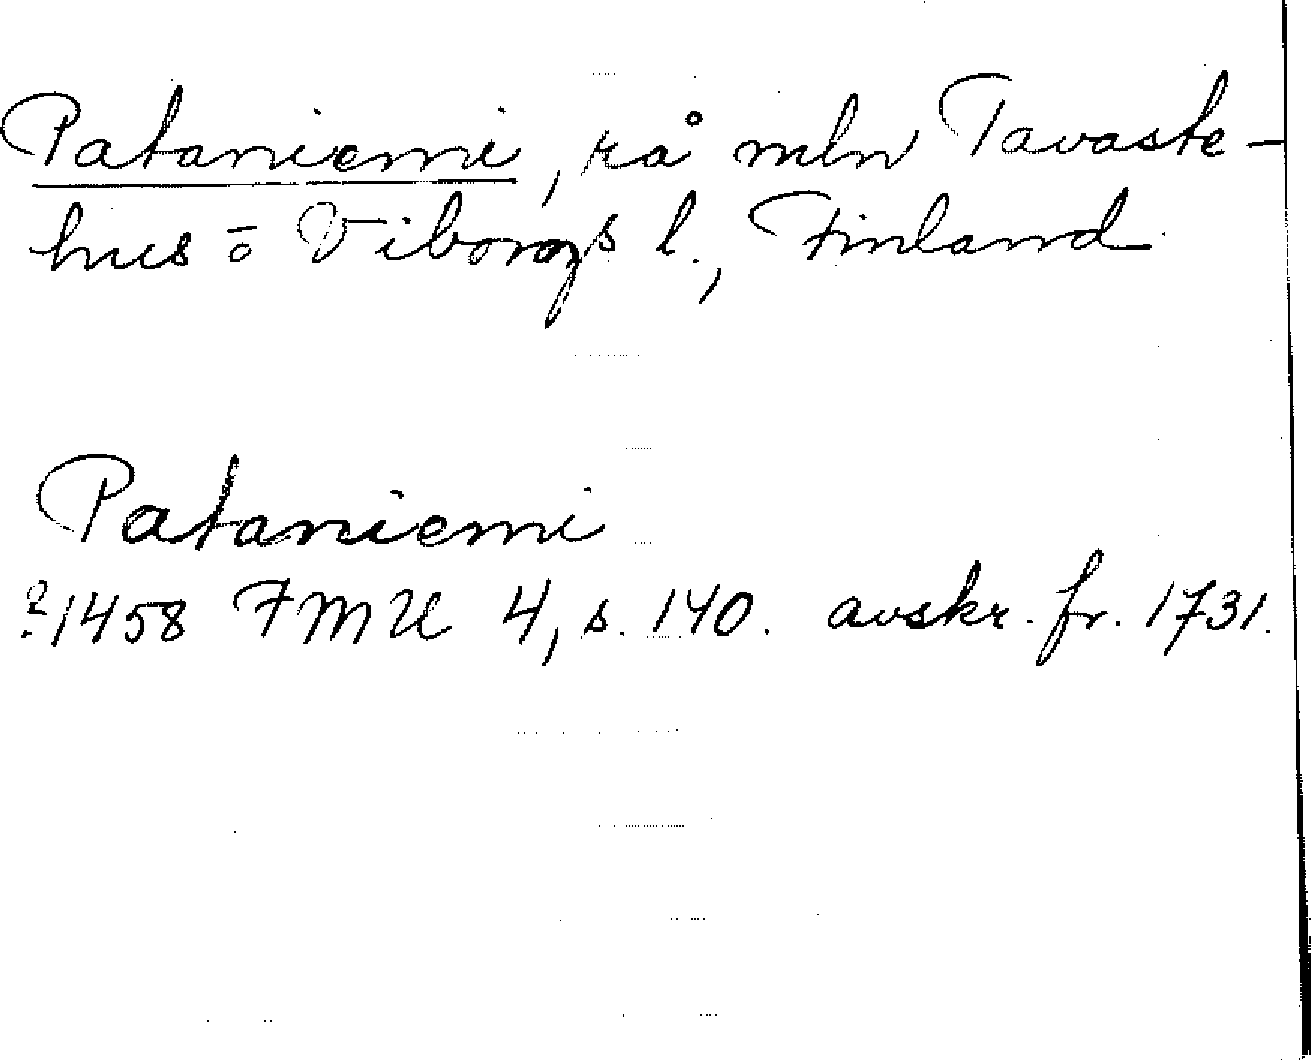 Pataniemi, rå mln Tavaste-
hus ō Viborgs l., Finland
Pataniemi
?1458 FMU 4, s. 140. avskr. fr. 1731.